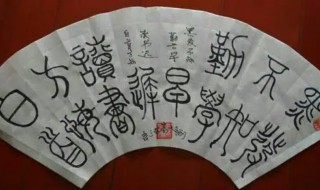 黑髮
不知
勤學
早
遲
讀書
方悔
白首